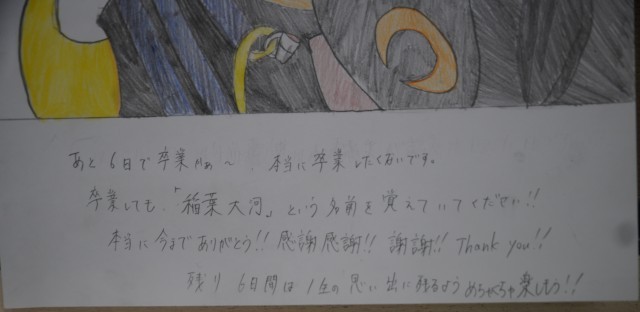 あと6日で卒業かぁ〜！本当に卒業したくないです。
卒業しても、「稲葉大河」という名前を覚えていてください!!
本当に今までありがとう!! 感謝感謝!! 謝謝!! Thank you!!
残り6日間は1生の思い出に残るようめちゃくちゃ楽しもう!!